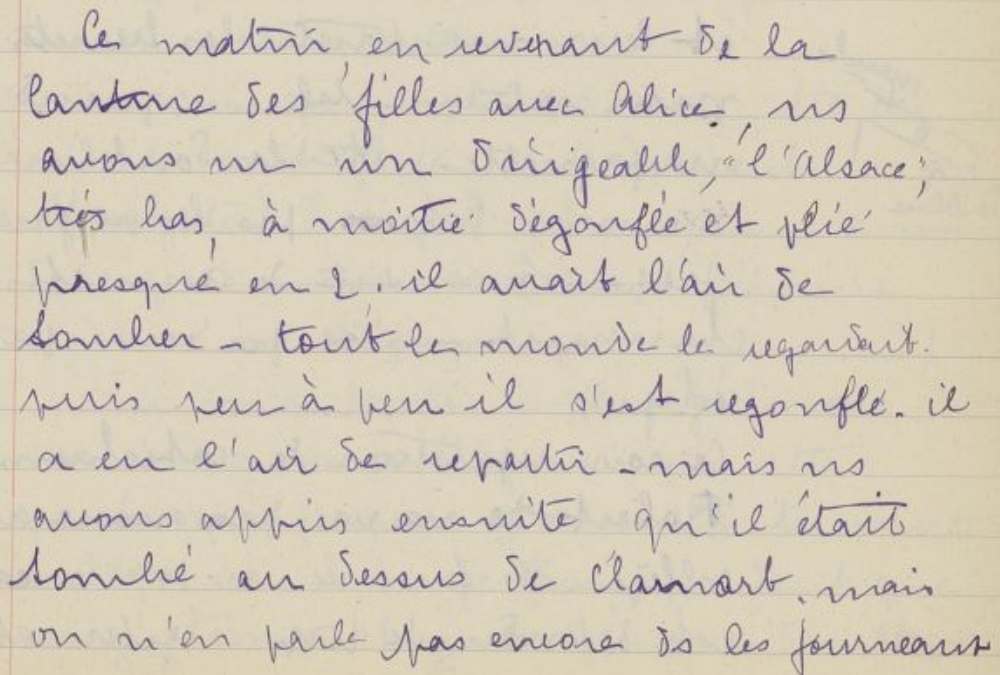 Ce matin, en revenant de la
Cantine des filles avec Alice, ns
avons vu un dirigeable, "l'Alsace",
très bas, à moitié dégonflé et plié
presque en 2. il avait l'air de
tomber - tout le monde le regardait.
puis peu à peu il s'est regonflé. il
a eu l'air de repartir - mais ns
avons appris ensuite qu'il était
tombé au dessus de Clamart. mais
on n'en parle pas encore ds les journeaux